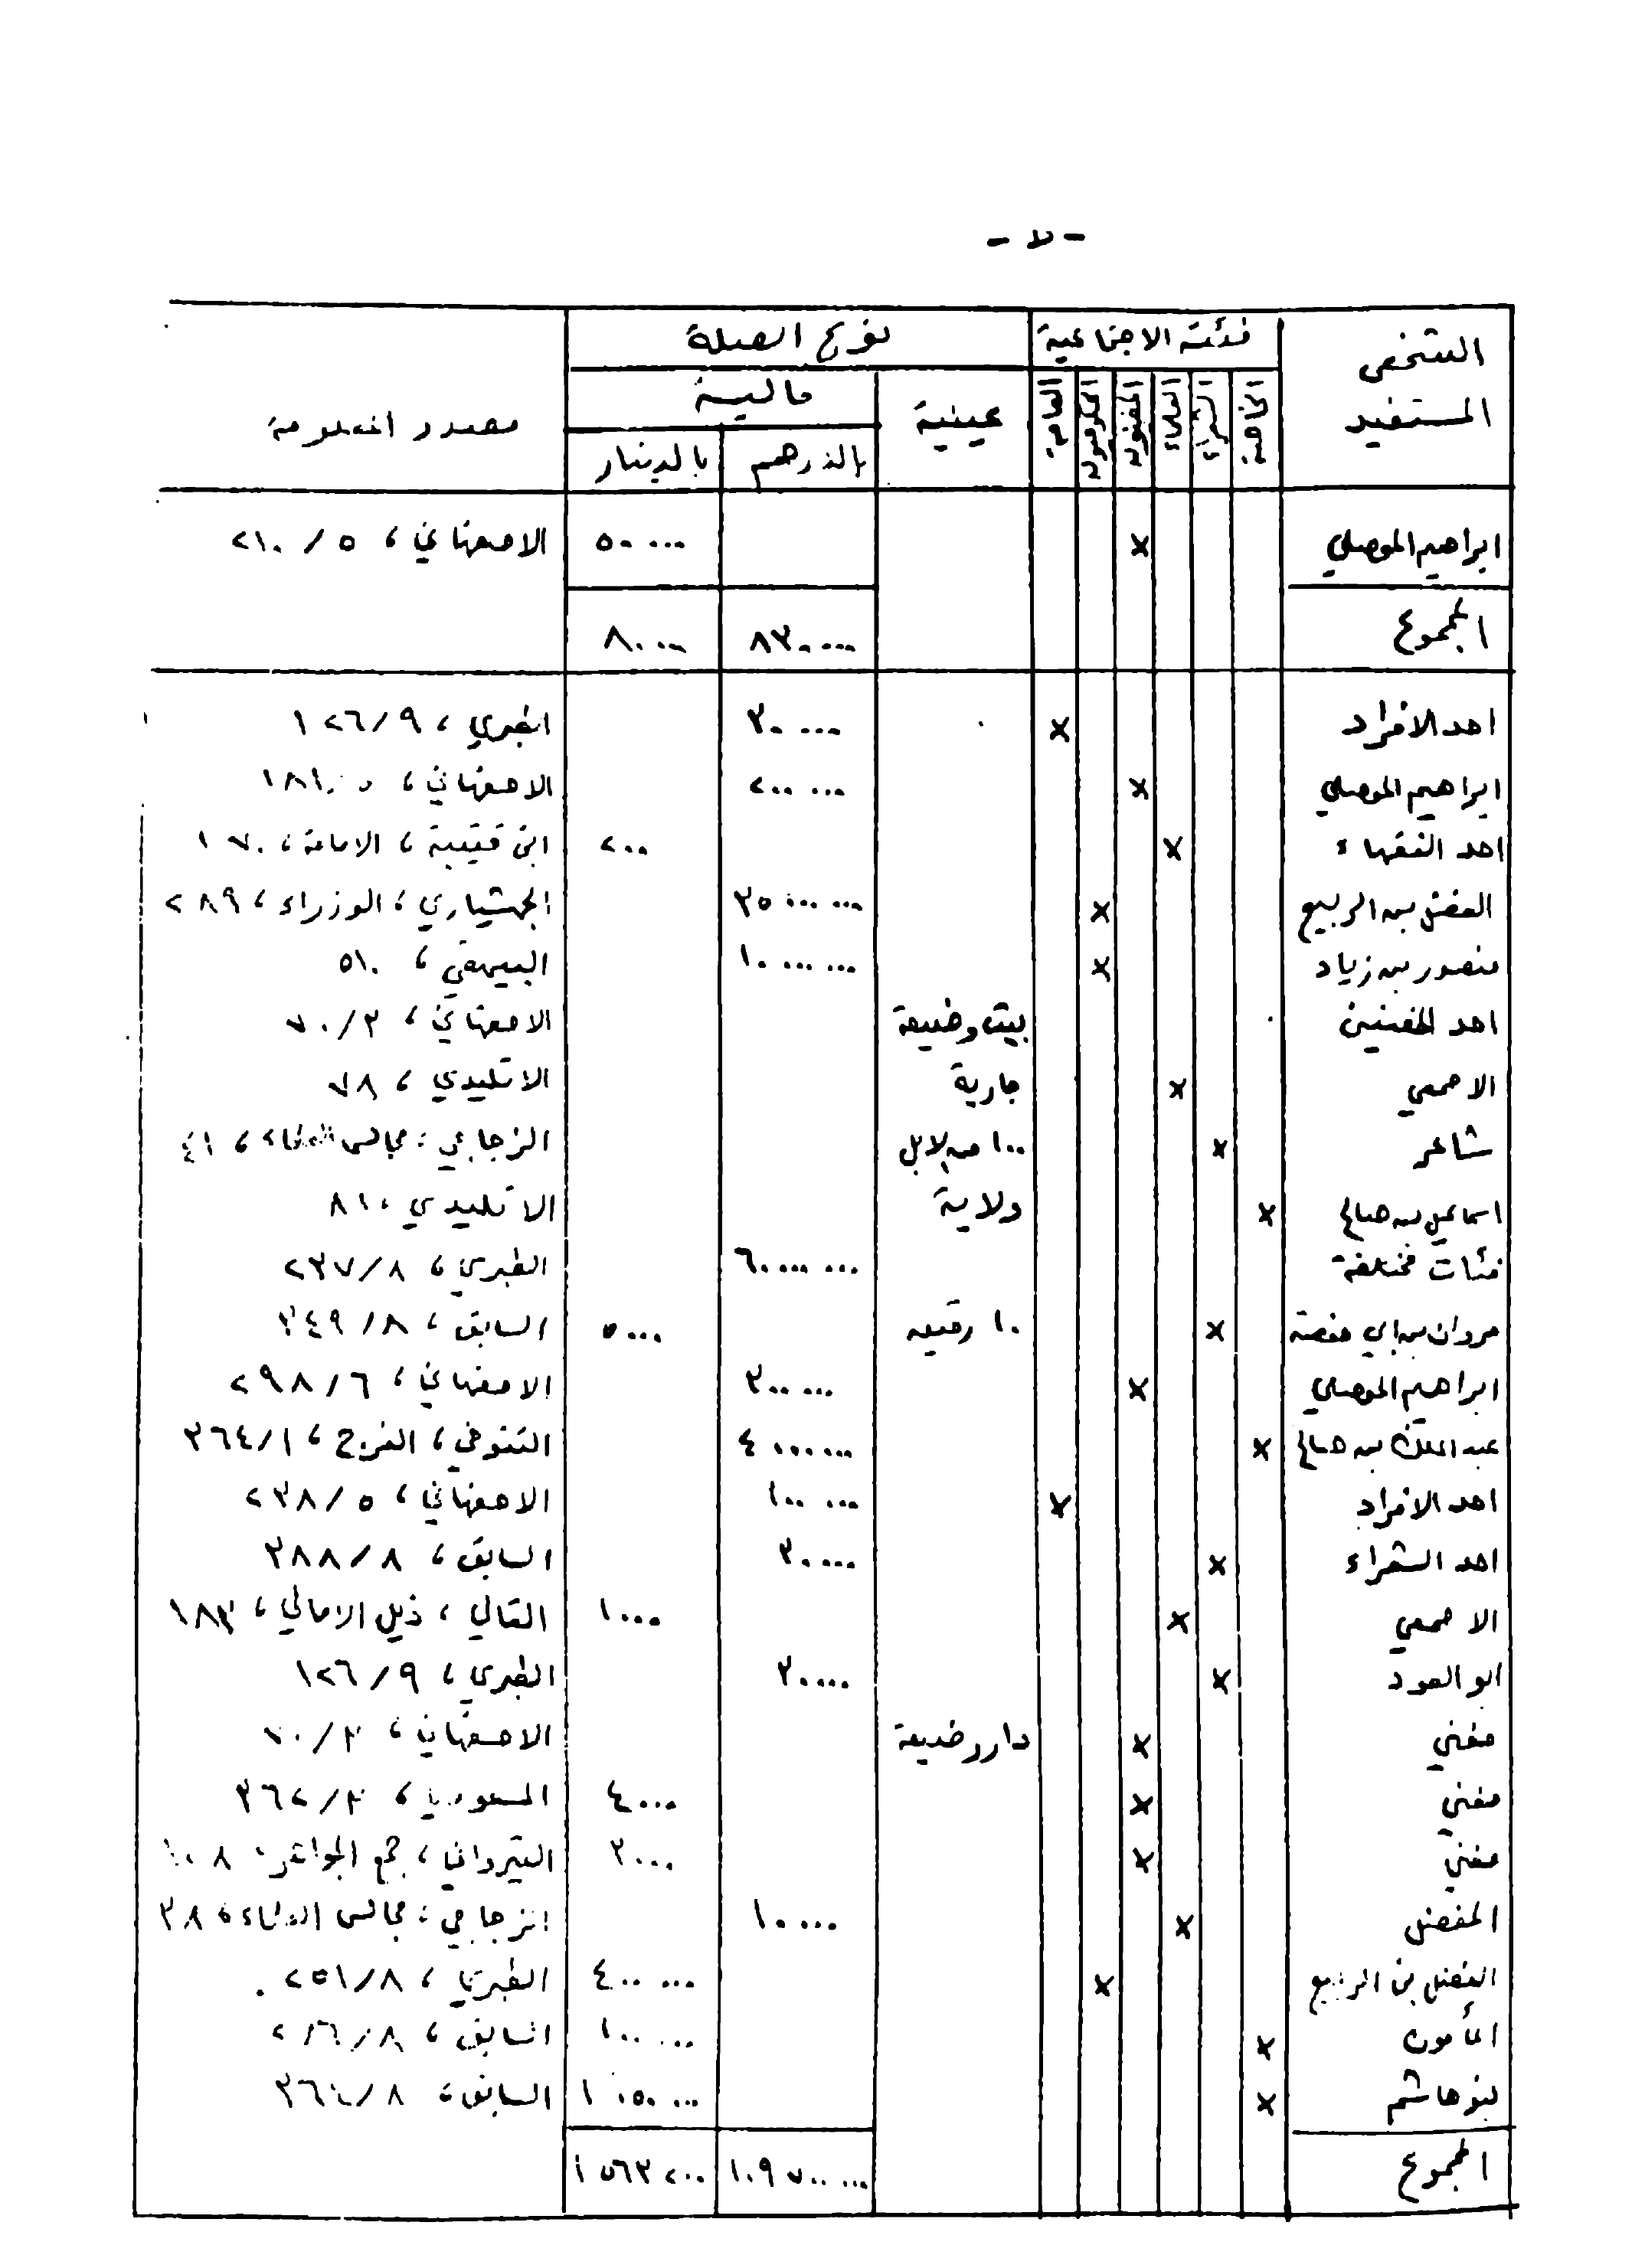 - ٧ -
الشخص المستفيد | فئته الاجتماعية | نوع الصلة | مصدر المعلومة
الخاصة | الشعراء | العلماء | المغنون | الحكوميون | العامة | عينية | مالية
بالدرهم | بالدينار
ابراهيم الموصلي | × | ٥٠٠٠٠ | الاصفهاني ، ٥ / ٢١٠
المجموع | ٨٣٠٠٠٠ | ٨٠٠٠٠
احد الافراد | × | ٣٠٠٠٠ | الطبري ، ٩ / ١٢٦
ابراهيم الموصلي | × | ٢٠٠٠٠٠ | الاصفهاني ،
احد الفقهاء | × | ٢٠٠ | ابن قتيبة ، الامامة ، ١٧٠
الفضل بن الربيع | × | ٣٥٠٠٠٠٠٠ | الجهشياري ، الوزراء ، ٢٨٩
منصور بن زياد | × | ١٠٠٠٠٠٠٠ | البيهقي ، ٥١٠
احد المغنين | بيت وضيعة | الاصفهاني ، ٣ / ٧٠
الاصمعي | × | جارية | الاتليدي ، ٧٨
شاعر | × | ١٠٠ من الابل | الزجاجي ، مجالس العلماء ، ٤١
اسماعيل بن صالح | × | ولاية | الاتليدي ، ٨١
فئات مختلفة | ٦٠٠٠٠٠٠٠ | الطبري ، ٨ / ٢٣٧
مروان بن ابي حفصة | × | ١٠ رقيق | ٥٠٠٠ | السابق ، ٨ / ٣٤٩
ابراهيم الموصلي | × | ٣٠٠٠٠٠ | الاصفهاني ، ٦ / ٢٩٨
عبد الملك بن صالح | × | ٤٠٠٠٠٠٠ | التنوخي ، الفرج ، ١ / ٣٦٤
احد الافراد | × | ١٠٠٠٠٠ | الاصفهاني ، ٥ / ٢٣٨
احد الشعراء | × | ٣٠٠٠٠ | السابق ، ٨ / ٣٨٨
الاصمعي | × | ١٠٠٠ | القالي ، ذيل الامالي ، ١٨٣
ابو العود | × | ٣٠٠٠٠ | الطبري ، ٩ / ١٢٦
مغني | × | دار وضيعة | الاصفهاني ، ٣ / ٧٠
مغني | × | ٤٠٠٠ | المسعودي ، ٣ / ٣٦٢
مغني | × | ٣٠٠٠ | القيرواني ، جمع الجواهر ،
المفضل | × | ١٠٠٠٠ | الزجاجي ، مجالس العلماء ، ٣٨
الفضل بن الربيع | × | ٤٠٠٠٠٠ | الطبري ، ٨ / ٢٥١
المأمون | × | ١٠٠٠٠٠ | السابق ،
بنو هاشم | × | ١٠٥٠٠٠٠ | السابق ،
المجموع | ١٠٩٧٠٠٠٠٠ | ١٥٦٣٢٠٠